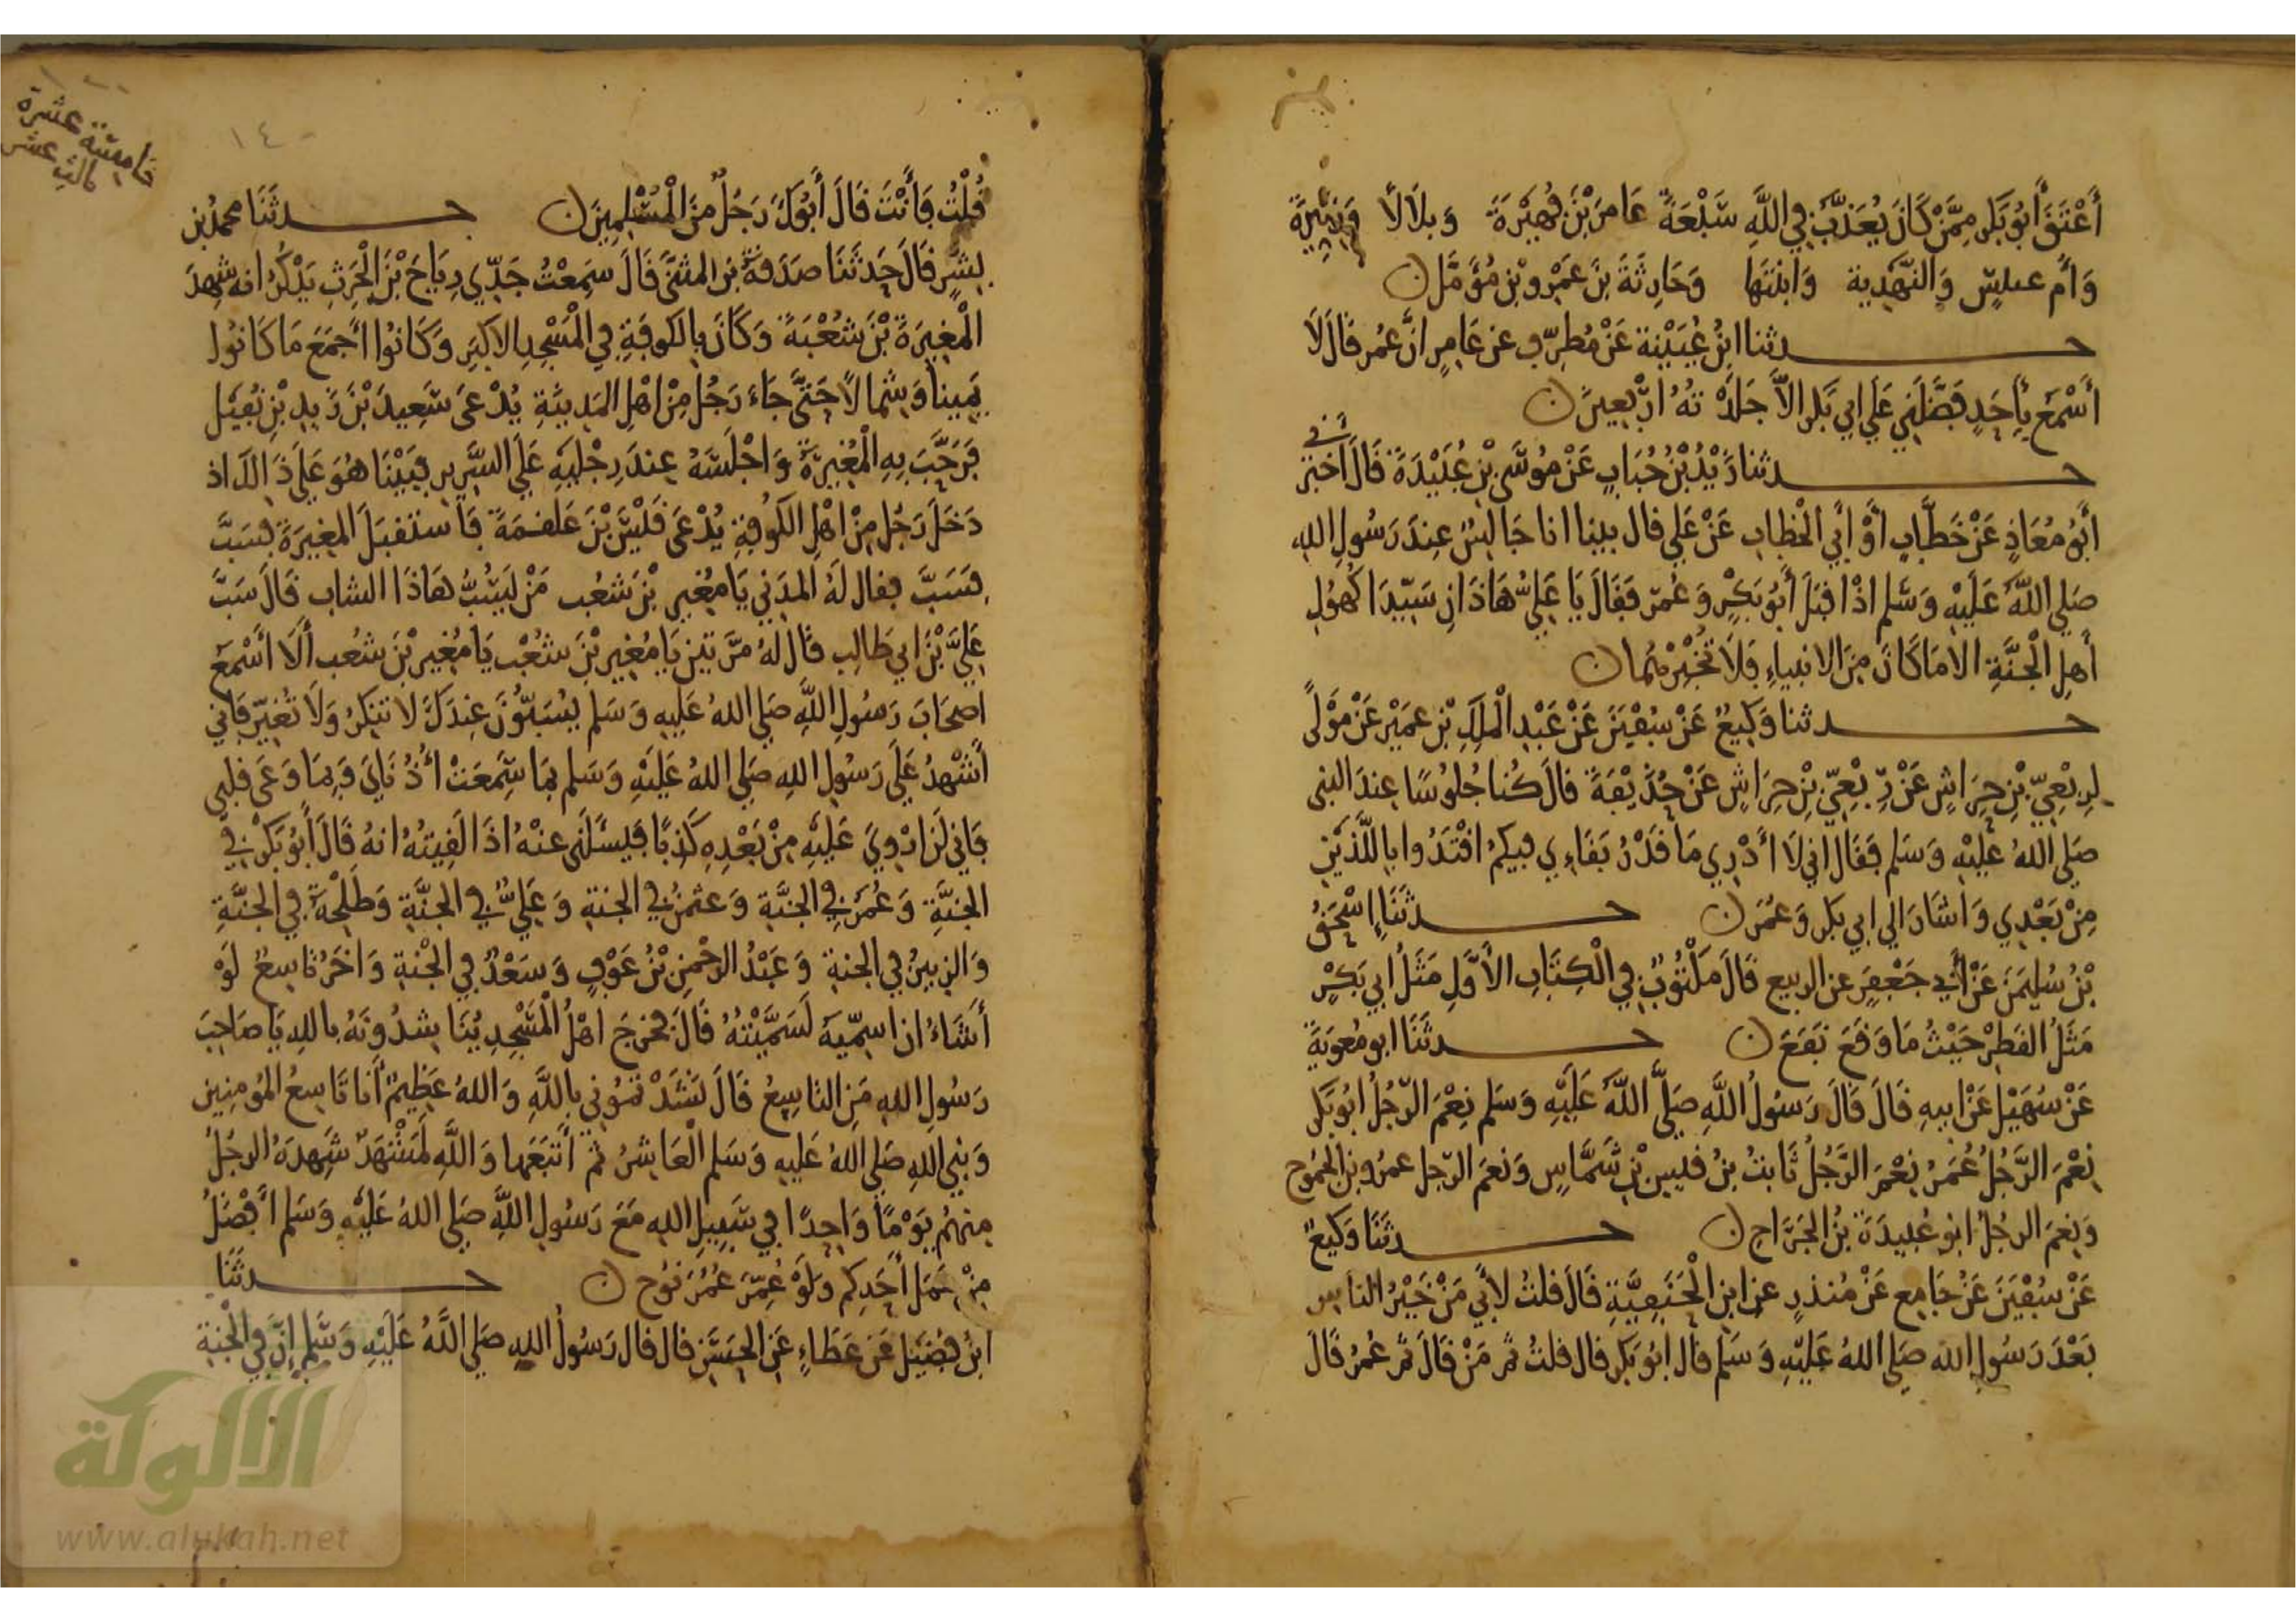 أَعْتَقَ أَبُو بَكر مِمَّنْ كَانَ يُعَذَّبُ فِي اللَّهِ سَبْعَةً عَامِرَ بْنَ فُهَيْرَةَ وَبِلَالًا وَزِنِّيرَةَ
وَأُم عبيسٍ وَالنَّهْدِية وَابنَتَها وَحَارِثَةَ بنَ عَمْرِو بْنِ مُؤَمَّل
حدثنا ابنُ عُيَيْنة عَنْ مُطرِّفٍ عن عَامِرٍ انَّ عُمر قَالَ لَا
أَسْمَع بِأَحَدٍ فَضَّلَنِي عَلَى ابي بَكر الاَّ جَلَدْتهُ ارْبعِينَ
حدثنا زَيْدُ بْنُ حُبَابٍ عَنْ مُوسَى بْنِ عُبَيْدَةَ قَالَ أخبرني
أَبُو مُعَاذٍ عَنْ خَطَّابٍ أَوْ أَبِي الْخطابِ عَنْ عَلِي قال بينا انا جَالِسٌ عِندَ رَسُولِ اللهِ
صَلى اللَّهُ عَلَيْهِ وَسَلم اذْ اقبَلَ أَبُو بَكْرٍ وَعُمَر فَقَالَ يَا عَلِيُّ هَاذَانِ سَيِّدَا كُهُولِ
أَهلِ الْجَنَّةِ الا مَا كَانَ مِنَ الانبياءِ فَلَا تُخْبِرْهُمَا
حدثنا وَكِيعٌ عَنْ سُفْيَنَ عَنْ عَبْدِ الْمَلِكِ بْنِ عُمَيْر عَنْ مَوْلًى
لِرِبْعِيِّ بْنِ حِرَاشٍ عَنْ رِبْعِيِّ بْنِ حِرَاشٍ عَنْ حُذَيْفَةَ قالَ كُنا جُلُوسًا عِندَ النبي
صَلى اللهُ عَلَيْهِ وَسَلم فَقَالَ اني لَا أَدْرِي مَا قَدْرُ بَقَاءِي فيكمُ اقْتَدُوا بِاللَّذَيْنِ
مِنْ بَعْدِي وَاشَارَ الى ابي بَكر وَعُمَرَ حدثَنَا إسْحَقُ
بْنُ سُلَيمَنَ عَنْ أبي جَعْفَرَ عن الربيع قَالَ مَكْتُوبٌ فِي الْكِتَابِ الأَوَّلِ مَثَلُ ابي بَكْرٍ
مَثَلُ القَطِرْ حَيْثُ مَا وَقَعَ نَفَعَ حدثَنَا ابو مُعويَةَ
عَنْ سُهَيْلٍ عَنْ ابيهِ قَالَ قَالَ رَسُولُ اللَّهِ صَلَّى اللَّهُ عَلَيْهِ وَسَلم نِعْمَ الرَّجُلُ ابُو بَكر
نِعْمَ الرَّجُلُ عُمَرُ نِعْمَ الرَّجُلُ ثَابتُ بنُ قيس بْنِ شَمَّاسٍ وَنِعمَ الرّجل عمرُو بن الجَمُوح
وَنِعمَ الرجُلُ ابو عُبيدَةَ بنُ الجَرَّاحِ حدثَنَا وَكِيعٌ
عَنْ سُفْيَنَ عَنْ جَامِع عَنْ مُنذرٍ عن ابن الْحَنَفِيَّةِ قَالَ قلتُ لأَبِي مَنْ خَيْرُ الناس
بَعْدَ رَسُولِ الله صَلى اللهُ عَلَيْهِ وَسَلم قال ابُو بَكر قال قلتُ ثم مَنْ قَالَ ثم عُمرُ قَالَ
خامسَة عشرة
ثالث عشر
١٤٠
قُلْتُ فَأَنْتَ قَالَ أَبُوكَ رَجُلٌ مِنَ الْمُسْلِمِينَ حدثَنَا محمدُ بن
بِشرٍ قَالَ حَدثَنَا صَدَقَةُ بن المثنَّى قَالَ سَمِعْتُ جَدِّي رِيَاحَ بْنَ الْحَرِثِ يَذْكُرُ انه شهِدَ
الْمُغِيرَةَ بْنَ شعْبَةَ وَكَانَ بِالكوفَةِ فِي الْمَسْجِدِ الاكبَرِ وَكَانُوا اجمَعَ مَا كَانُوا
يَمِينا وَشمالا حَتَّى جَاءَ رَجُل مِنْ اهْلِ المَدِينَةِ يُدْعَى سَعِيدَ بْنَ زَيدِ بْنِ نُفَيْل
فَرَحَّبَ بِهِ الْمُغِيرَةُ وَاجْلَسَهُ عِندَ رِجْلَيهِ عَلَى السَّرِيرِ فَبَيْنَا هُوَ عَلَى ذَالكَ اذ
دَخَلَ رَجُل مِنْ اهْلِ الكُوفَةِ يُدْعَى قَيْسَ بْنَ عَلقمَةَ فَاستَقبَلَ المغِيرَةَ فسَبَّ
فسَبَّ فقال لَهُ المدَني يَا مُغِير بْنَ شعُب مَنْ يَسُبُّ هَاذَا الشاب قَالَ سَبَّ
عَلِيَّ بْنَ ابي طَالِب قَالَ لهُ مرَّتين يَا مُغِير بْنَ شعُب يَا مُغِير بْنَ شعُب أَلَا أَسْمَعُ
اصحَابَ رَسُولِ اللَّهِ صَلى اللهُ عَلَيهِ وَسَلم يُسَبّونَ عِندَكَ لا تنكِرُ وَلَا تُغَيّر فَإني
أَشْهَدُ عَلَى رَسُولِ اللهِ صَلى اللهُ عَلَيْهِ وَسَلم بمَا سَمِعَتْ أُذُنَايَ وَبِمَا وَعَى قلبي
فَاني لَن ارْوِيَ عَلَيْهِ مِنْ بَعْدِهِ كَذِبًا فَيَسْأَلَني عنهُ اذَا لَقِيتُهُ انهُ قَالَ أَبُو بَكْرٍ في
الجَنَّةِ وَعُمَرُ في الجَنَّةِ وَعثمنُ في الجنةِ وَعَلِيٌّ في الجَنَّةِ وَطَلْحَةُ في الجَنَّةِ
وَالزبيرُ في الجنةِ وَعَبْدُ الرحْمنِ بْنُ عَوْفٍ وَسَعْدٌ في الجَنةِ وَاخَرُ تاسِعٌ لَوْ
أَشَاءُ ان اسَمّيَهُ لَسَمَّيْتُهُ قَالَ فخرَجَ اهْلُ الْمَسْجِدِ يُنَاشدُونَهُ باللهِ يَا صَاحِبَ
رَسُولِ اللهِ مَنِ التاسِعُ قَالَ نَشَدْتمُوني باللَّهِ وَاللهُ عَظِيمٌ أَنا تَاسِعُ المُومِنِين
وَنبي اللهِ صَلى اللهُ عَلَيهِ وَسَلم الْعَاشِرُ ثم أَتبَعَها وَاللَّهِ لَمَشْهَدٌ شَهِدَهُ الرجُلُ
مِنهُمْ يَوْمًا وَاحِدًا فِي سَبِيلِ اللهِ مَعَ رَسُولِ اللَّهِ صَلى اللهُ عَلَيْهِ وَسَلم أَفْضَلُ
مِنْ عَمَل أَحَدِكم وَلَوْ عُمِّرَ عُمُرَ نُوح حدثَنَا
ابنُ فُضَيْل عَن عَطَاءٍ عَنِ الحَسَنِ قال قال رَسُولُ اللهِ صَلى اللَّهُ عَلَيْهِ وَسَلم إنَّ في الْجَنةِ
الألوكة
www.alukah.net